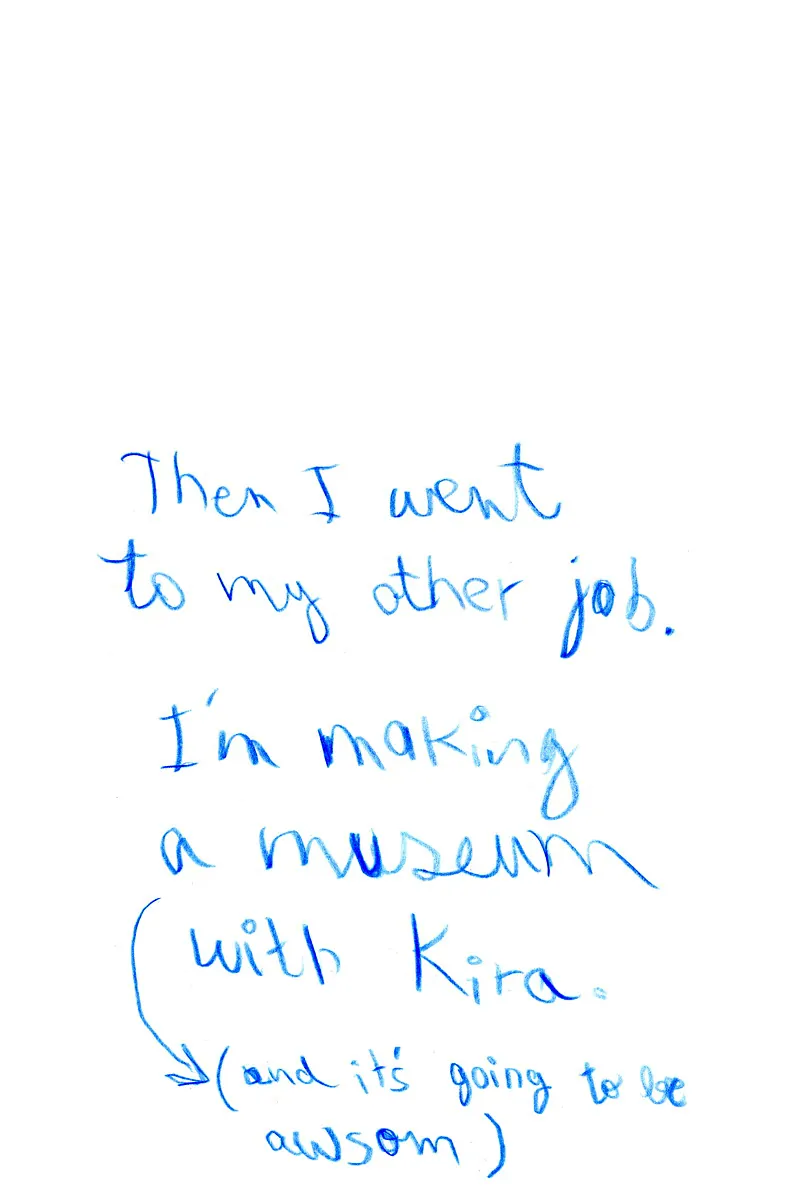 Then I went
to my other job.
I'm making
a museum
with Kira.
(and it's going to be
awsom)